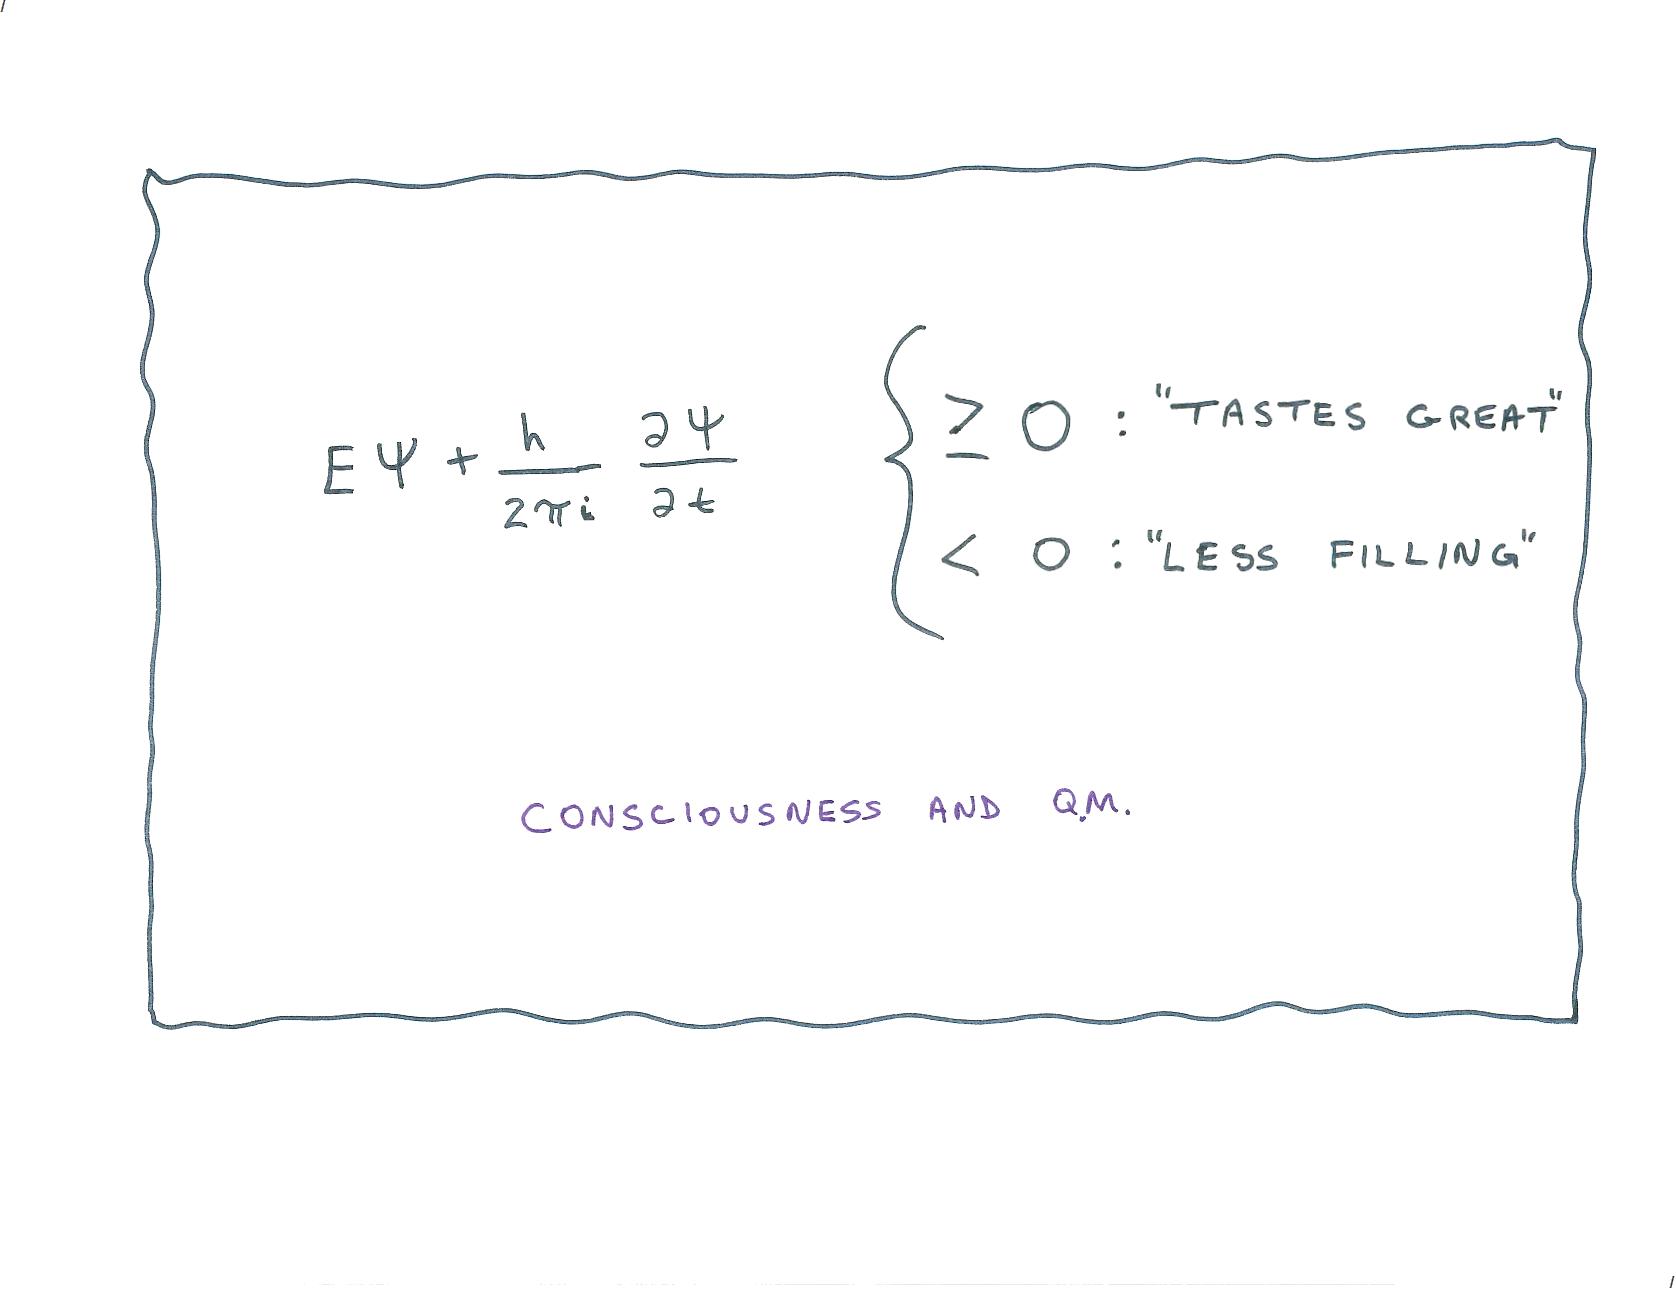 EΨ + h/2πi ∂Ψ/∂t { ≥ 0 : "TASTES GREAT"
< 0 : "LESS FILLING"
CONSCIOUSNESS AND Q.M.